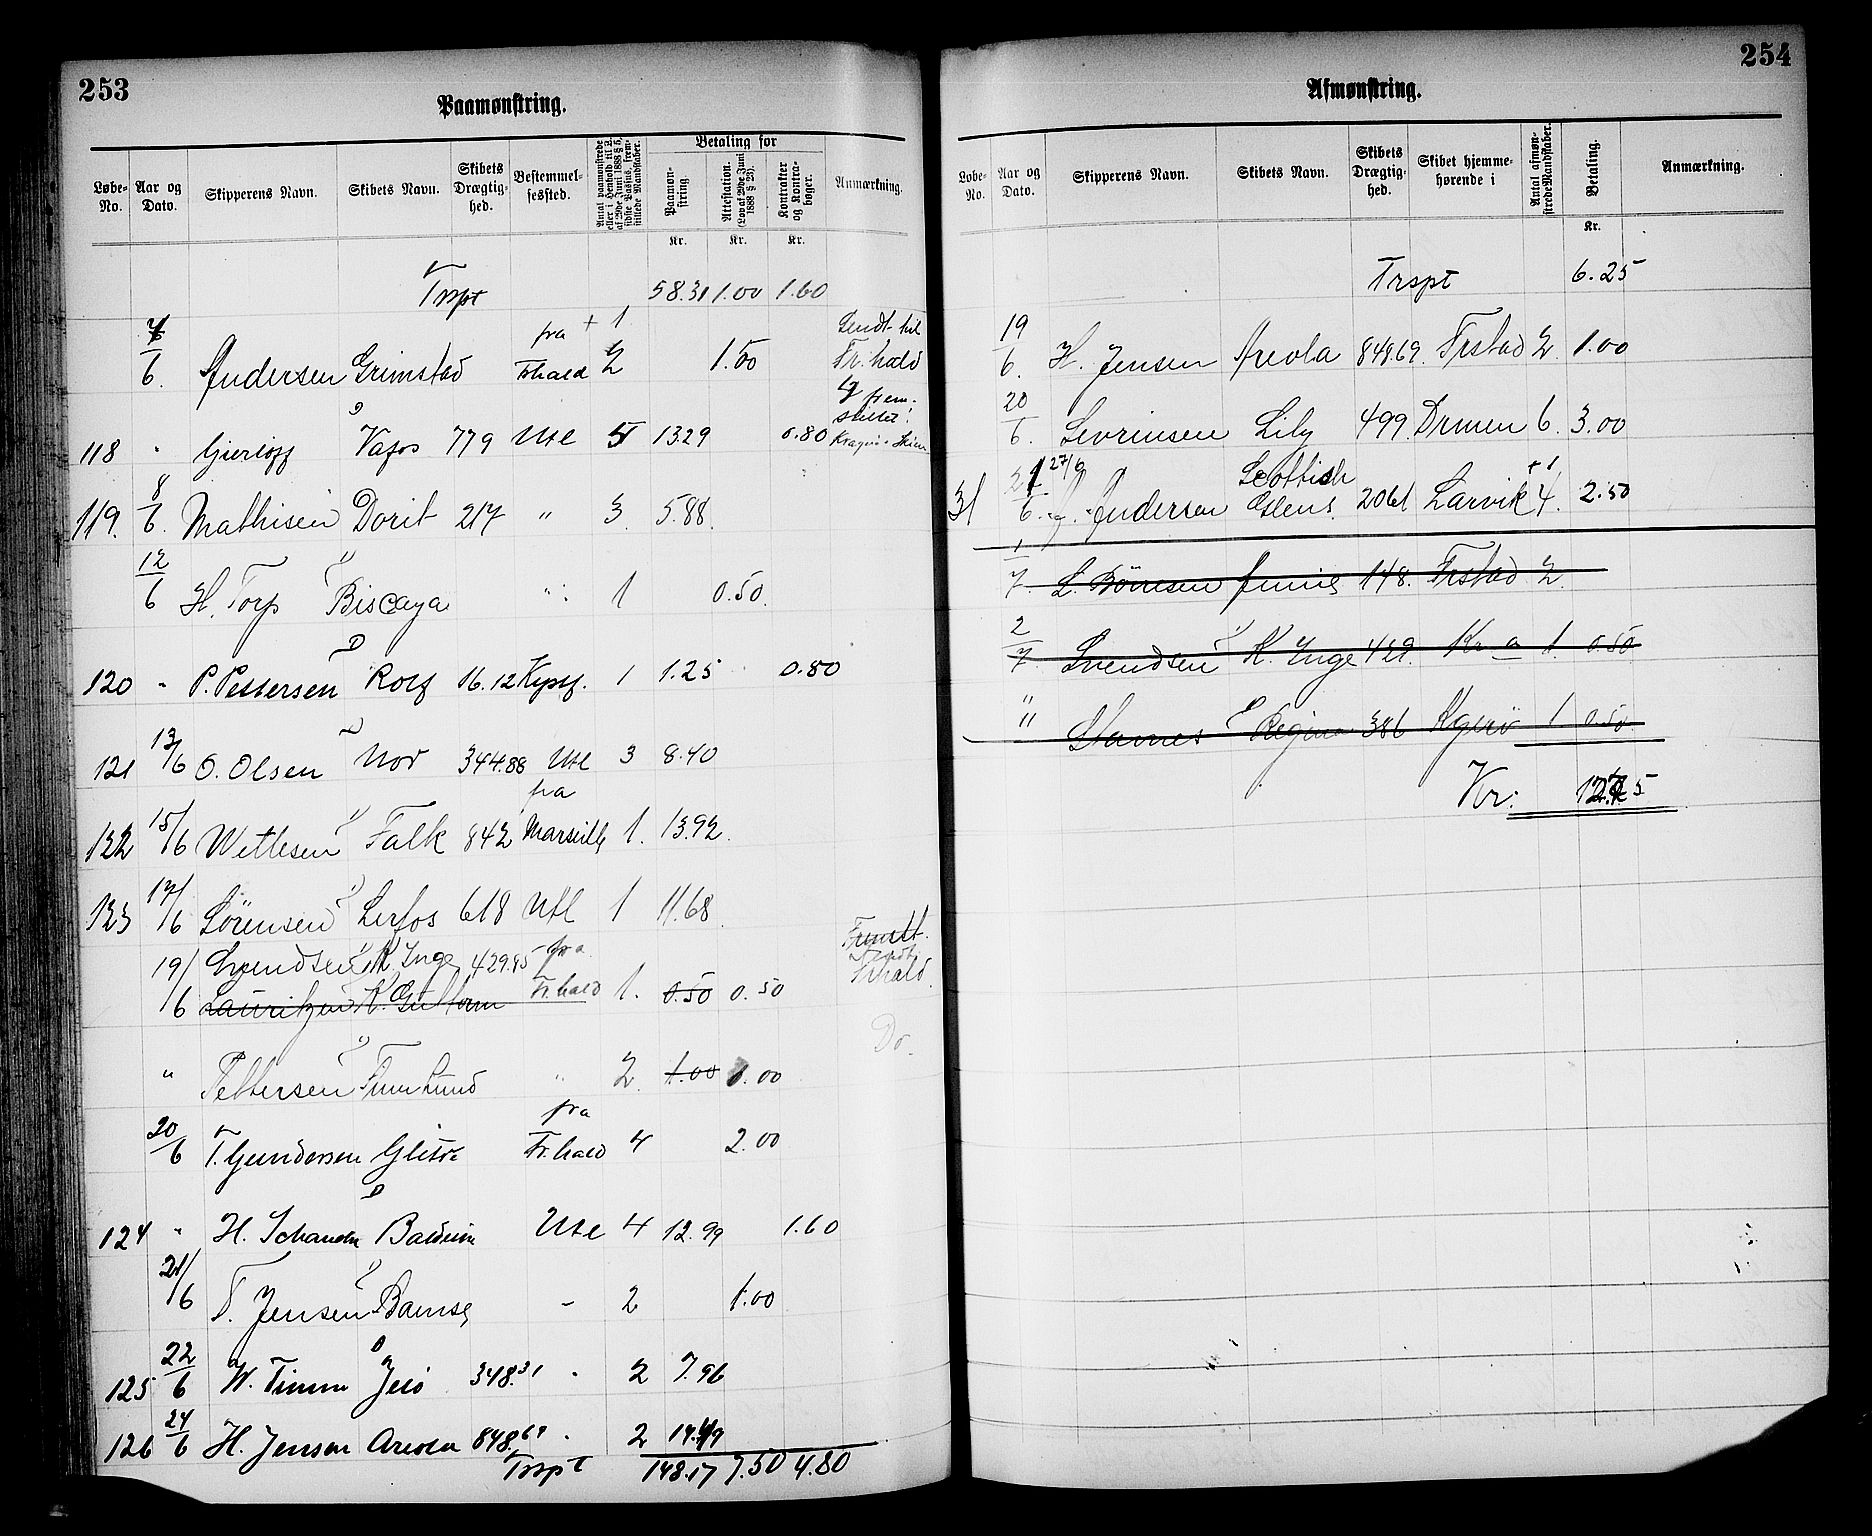 253
Paamønstring.
Løbe-No. Aar og Dato. Skipperens Navn. Skibets Navn. Skibets Drægtighed. Bestemmelsessted. Antal paamønstrede eller i Henhold til L. af 29de Juni 1888 § 5, sidste Passus, fremstillede Mandskaber. Betaling for Paamønstring. Attestation. (Lov af 29de Juni 1888 § 23). Kontrakter og Kontrabøger. Anmærkning.
Kr. Kr. Kr.
Trspt 58.31 1.00 1.60
6. Andersen Grimstad fra Frhald 2 1.00 Sendt til Fr.hald
118 " Gjerløff D Vafos 779 Utl 5 13.29 0.80
119. 8/6. Mathisen Dorit 217 " 3 5.88.
12/6 H. Torp Biscaya " 1 0.50.
120 " P. Pettersen D Rolf 16.12 1 1.25 0.80
121 13/6 O. Olsen Nor 344.88 Utl 3 8.40
122 15/6 Wetlesen Falk 842 fra Marseille 1. 13.92.
123 17/6 Sörensen Lerfos 618 Utl 1 11.68
19/6 Svendsen K. Inge 429.95 fra Fr.hald 1. 0.50 0.50
Lauritzen K. Guttorm
" Pettersen " 2 1.00 1.00 Do.
20/6 T. Gundersen Glitre fra Fr.hald 4 2.00
124 " H. D Utl 4 12.99 1.60
21/6 T. Jensen Bamse " 2 1.00
125 22/6 W. Timm 348.31 " 2 7.96
126 24/6 H. Jensen Areola 848.69 " 2
Trspt 148.17 7.50 4.80
254
Afmønstring.
Løbe-No. Aar og Dato. Skipperens Navn. Skibets Navn. Skibets Drægtighed. Skibet hjemmehørende i Antal afmønstrede Mandskaber. Betaling. Anmærkning.
Kr.
Trspt 6.25
19/6. H. Jensen Areola 848.69. Frstad 2. 1.00
20/6. Sevrinsen Lily 499. Drmen 6. 3.00
31 27/6 Andersen Scottish 2061 Larvik +1 4. 2.50
1/7. L. 148. Frstad 2.
2/7. Svendsen K. Inge 429. Kr a 1. 0.50
" Regina 386 1 0.50
Kr: 12.75